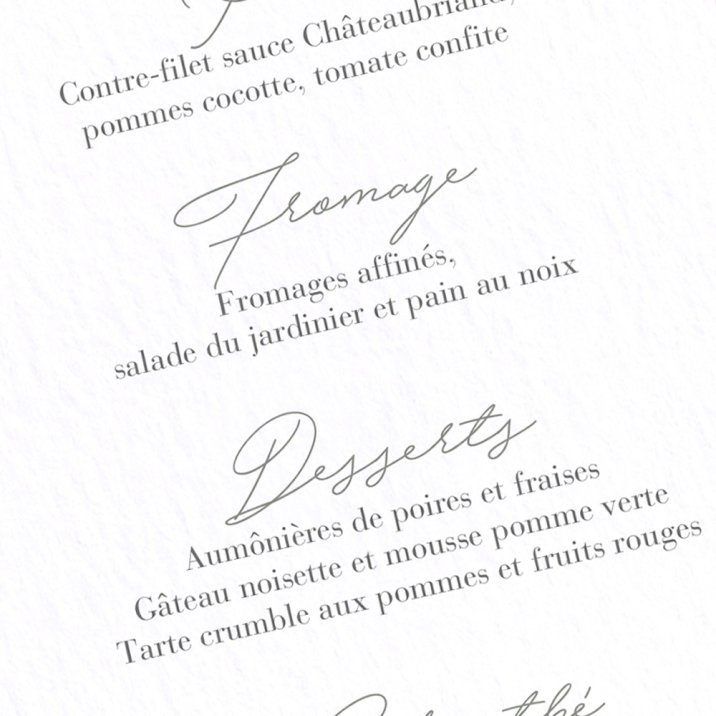 Contre-filet sauce Châteaubriand,
pommes cocotte, tomate confite
Fromage
Fromages affinés,
salade du jardinier et pain au noix
Desserts
Aumônières de poires et fraises
Gâteau noisette et mousse pomme verte
Tarte crumble aux pommes et fruits rouges
thé